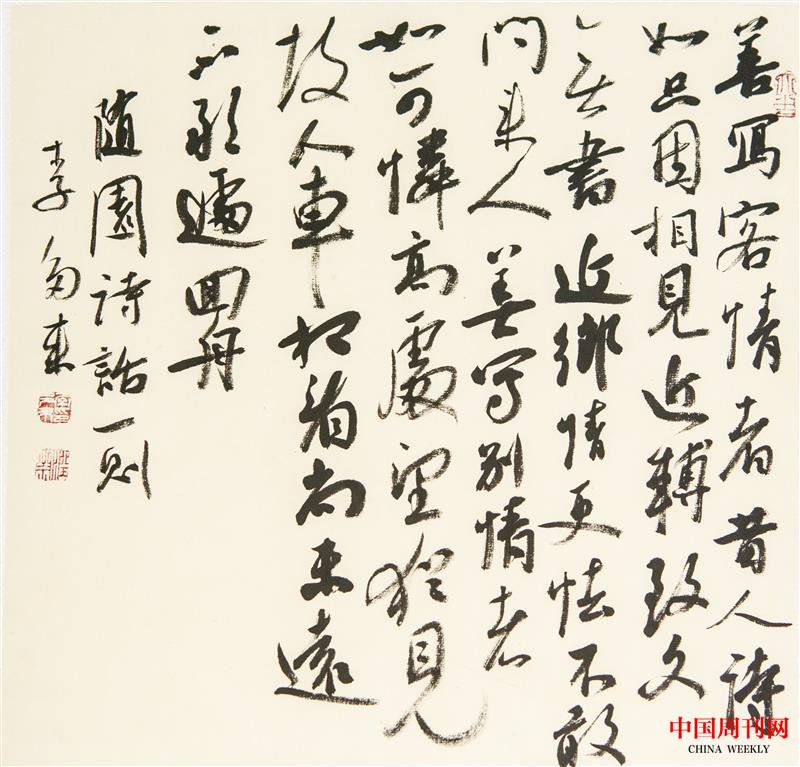 善冩客情者昔人詩
如只因相見近轉致久
无書近鄉情更怯不敢
問来人善写別情者
如可憐高處望猶見
故人車相看尚未遠
不敢遽回舟
随園詩話一則
李
中国周刊网
CHINA WEEKLY